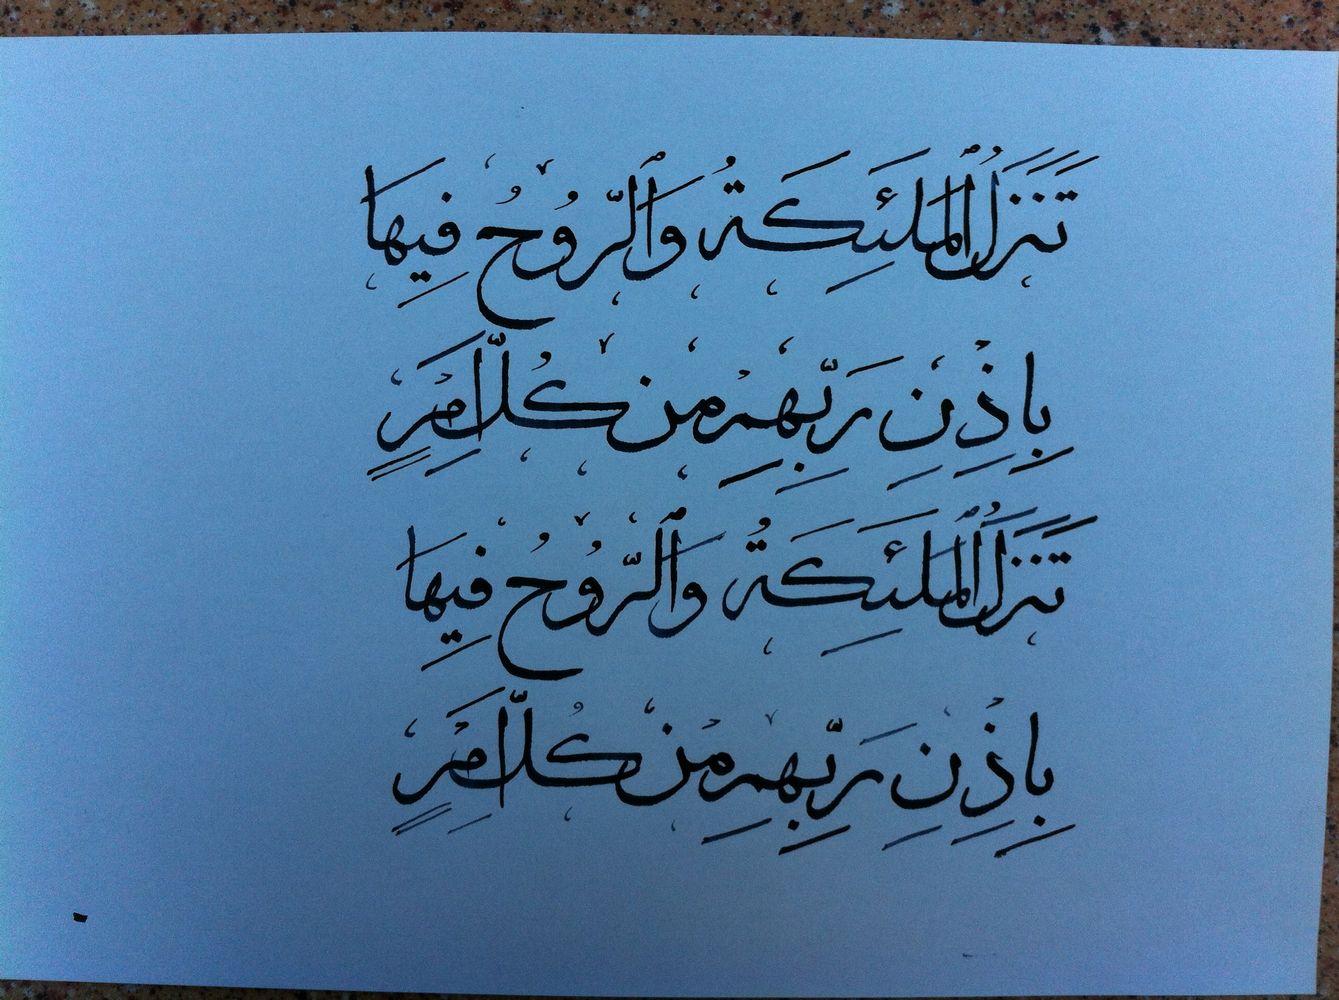 تَنَزَّلُ ٱلْمَلَئِكَةُ وَٱلرُّوحُ فِيهَا
بِإِذْنِ رَبِّهِمْ مِنْ كُلِّ أَمْرٍ
تَنَزَّلُ ٱلْمَلَئِكَةُ وَٱلرُّوحُ فِيهَا
بِإِذْنِ رَبِّهِمْ مِنْ كُلِّ أَمْرٍ